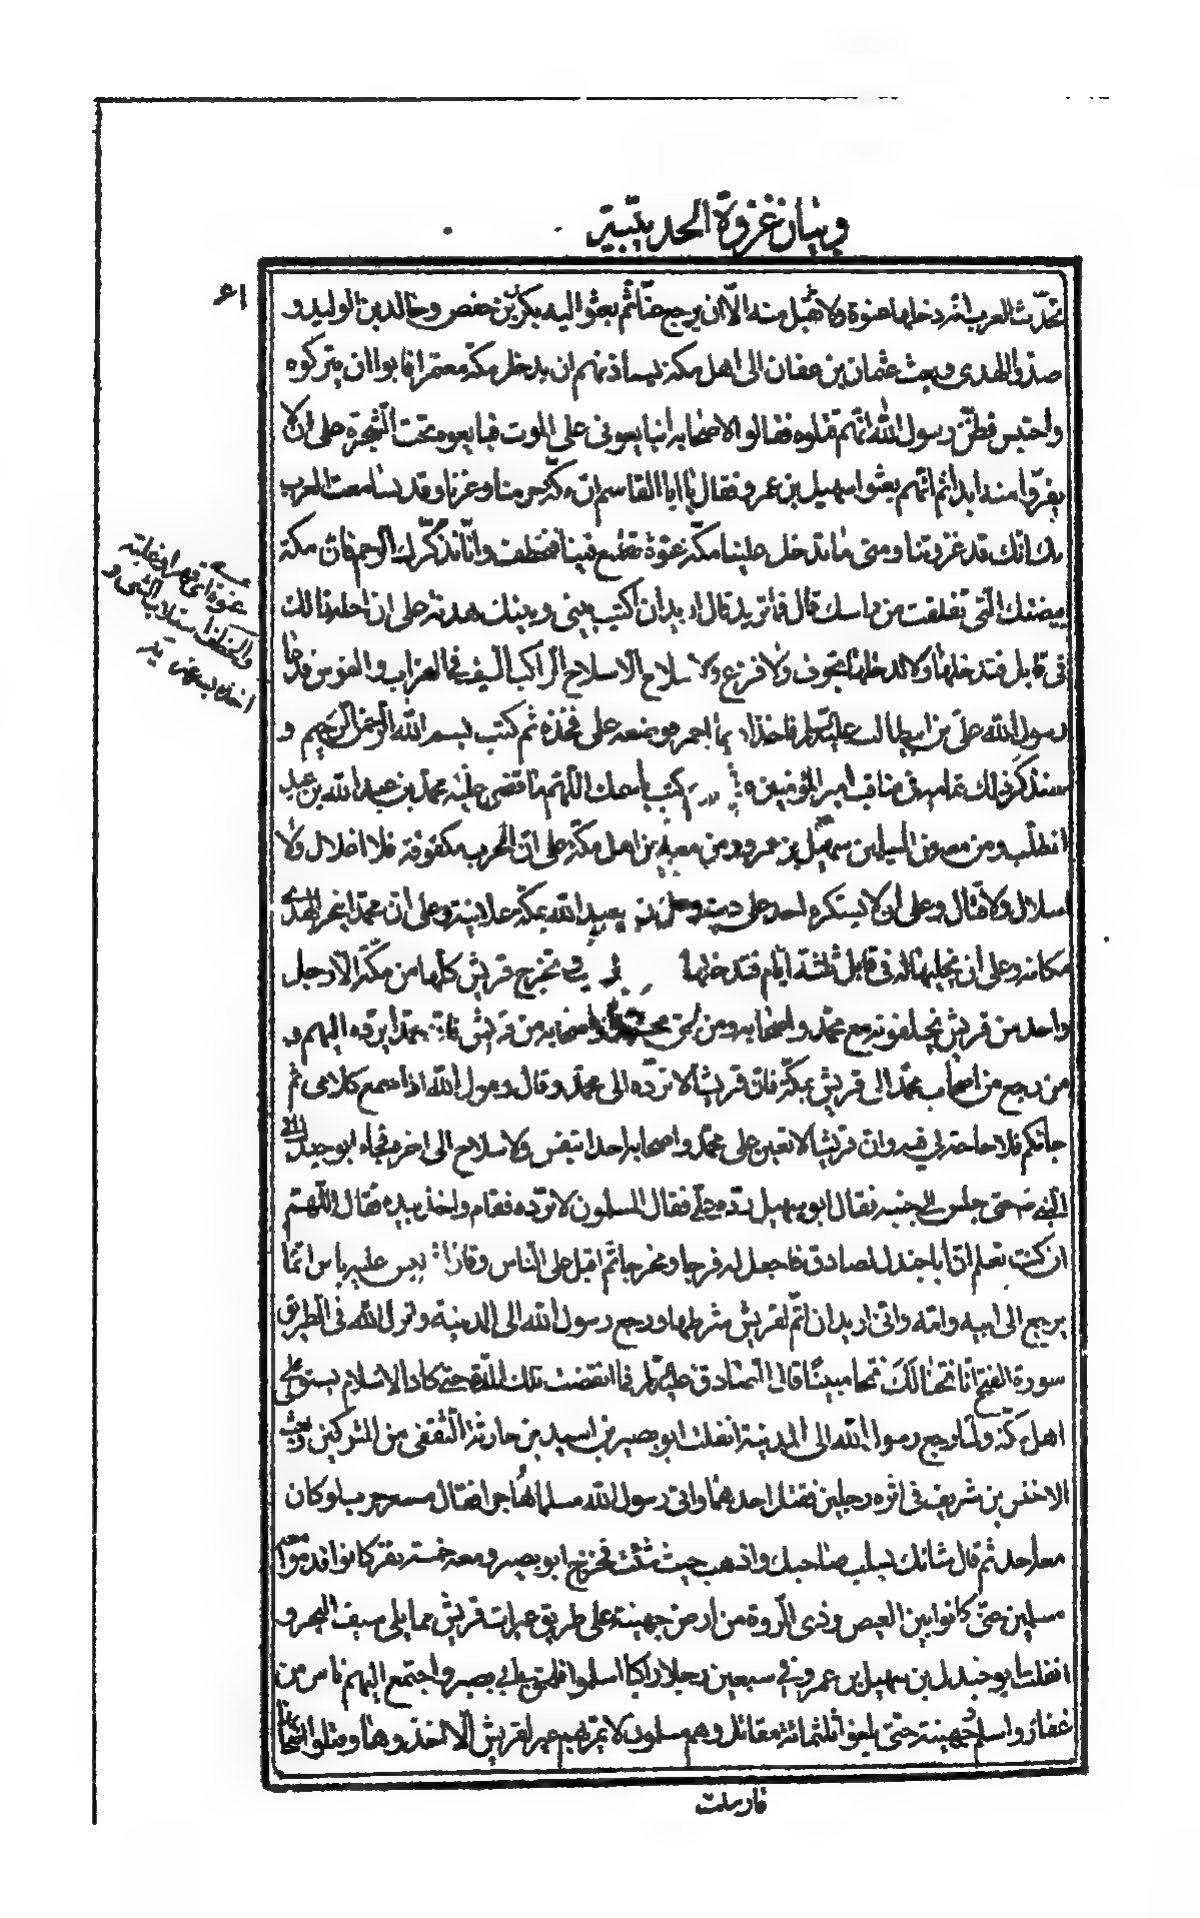 و بیان غزوة الحدیبیة
۶۱
تحدّث العرب انّه دخلها عنوة ولا نقبل منه الّا ان یرجع عنّا ثم بعثوا الیه بکر بن حفص و خالد بن الولید و
صدّوا الهدی و بعث عثمان بن عفان الی اهل مکة یستأذنهم ان یدخل مکّة معتمرا فابوا ان یترکوه
واحتبس فظنّ رسول الله انّهم قتلوه فقال لاصحابه اتبایعونی علی الموت فبایعوه تحت الشّجرة علی ان لا
یفرّوا منه ابدا ثم انّهم بعثوا سهیل بن عمرو فقال یا ابا القاسم انّ مکّة حرمنا وعزنا وقد تسامعت العرب
بك انّك قد غزوتنا ومتی ما تدخل علینا مکّة عنوة تطمع فینا فنخطف وانّا نذکّرك الرحم فان مکة
بیضتك الّتی تفلقت من راسك قال فما ترید قال ارید ان اکتب بینی وبینك هدنة علی ان اخلیها لك
فی قابل فتدخلها ولا تدخلها بخوف ولا فزع ولا سلاح الّا سلاح الراکب السّیف فی القراب والقوس فدعا
رسول الله علیّ بن ابیطالب علیه السلم فاخذ ادیما احمر فوضعه علی فخذه ثم کتب بسم الله الرّحمن الرّحیم و
سنذکر ذلك بتمامه فی مناقب امیر المؤمنین ع کتب باسمك اللّهم هذا ما قضی علیه محمّد بن عبد الله بن عبد
المطلّب ومن معه من المسلمین سهیل بن عمرو ومن معه من اهل مکّة علی انّ الحرب مکفوفة فلا اغلال ولا
اسلال ولا قتال وعلی ان لا یستکره احد علی دینه وعلی ان یعبد الله بمکّة علانیة وعلی انّ محمّدا ینحر الهدی
مکانه وعلی ان یخلیها له فی قابل ثلثة ایّام فیدخلها وتخرج قریش کلّها من مکّة الّا رجل
واحد من قریش یخلفونه مع محمّد واصحابه ومن لحق محمّدا واصحابه من قریش فانّ محمّدا یردّه الیهم و
من رجع من اصحاب محمّد الی قریش بمکّة فانّ قریشا لا تردّه الی محمّد وقال رسول الله اذا سمع کلامی ثم
جائکم فلا حاجة لی فیه وانّ قریشا لا تعین علی محمّد واصحابه احدا بنفس ولا سلاح الی اخره فجاء ابو جندل الی
النبی ص حتی جلس الی جنبه فقال ابوه سهیل ردّه علیّ فقال المسلمون لا نردّه فقام واخذ بیده فقال اللّهمّ
ان کنت تعلم انّ ابا جندل لصادق فاجعل له فرجا ومخرجا ثم اقبل علی الناس وقال انّه لیس علیه باس انّما
یرجع الی ابیه وامّه وانّی ارید ان اتمّ لقریش شرطها ورجع رسول الله الی المدینة وانزل الله فی الطّریق
سورة الفتح انّا فتحنا لك فتحا مبینا قال الصّادق علیه السلم فما انقضت تلك المدّة حتی کاد الاسلام یستولی علی
اهل مکّة ولمّا رجع رسول الله الی المدینة انفلت ابو بصیر بن اسید بن حارثة الثّقفی من المشرکین وبعث
الاخنس بن شریق فی اثره رجلین فقتل احدهما واتی رسول الله مسلما مهاجرا فقال مسعر حرب لو کان
معه احد ثم قال شانك بسلب صاحبك واذهب حیث شئت فخرج ابو بصیر ومعه خمسة نفر کانوا قدموا معه
مسلمین حتّی کانوا بین العیص وذی المروة من ارض جهینة علی طریق عیرات قریش مما یلی سیف البحر و
انفلت ابو جندل بن سهیل بن عمرو فی سبعین رجلا راکبا اسلموا فلحق بابی بصیر واجتمع الیهم ناس من
غفار واسلم وجهینة حتّی بلغوا ثلثمائة مقاتل وهم مسلمون لا یمرّ بهم عیر لقریش الّا اخذوها وقتلوا اصحابها
فارسلت
عنوة ای قهرا وغلبة
والخطف استلاب الشئ و
اخذه بسرعة